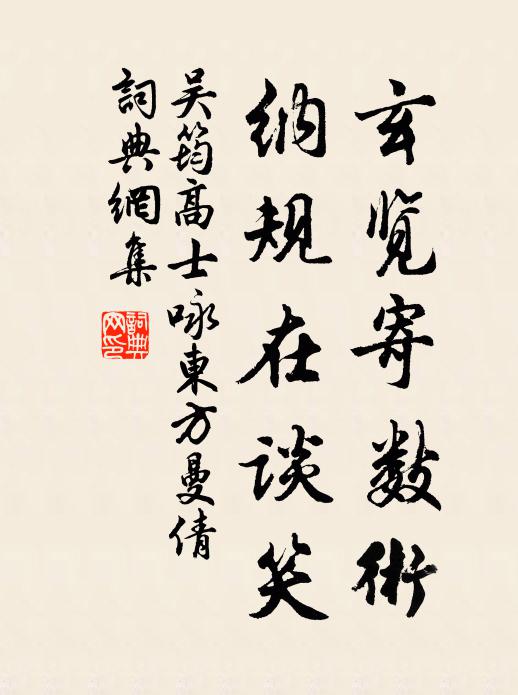 玄览寄数術
纳规在谈笑
吴筠高士咏東方曼倩
詞典網集
詞典网印